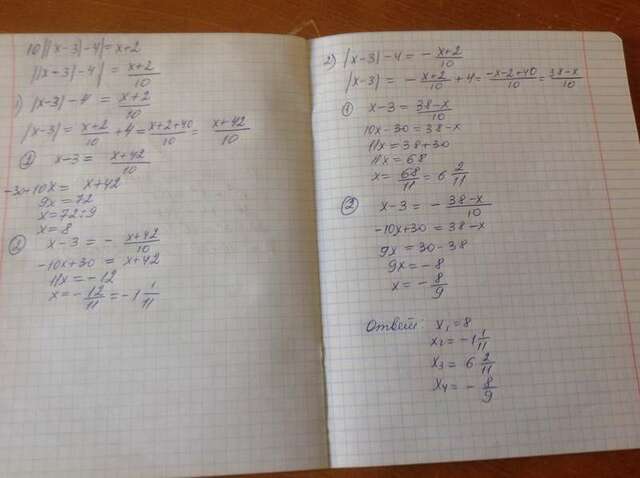 10||x-3|-4|=x+2
||x-3|-4| = (x+2)/10
1) |x-3|-4 = (x+2)/10
|x-3| = (x+2)/10 + 4 = (x+2+40)/10 = (x+42)/10
① x-3 = (x+42)/10
-30+10x = x+42
9x = 72
x = 72:9
x = 8
② x-3 = - (x+42)/10
-10x+30 = x+42
11x = -12
x = - 12/11 = -1 1/11
2) |x-3|-4 = - (x+2)/10
|x-3| = - (x+2)/10 + 4 = (-x-2+40)/10 = (38-x)/10
① x-3 = (38-x)/10
10x-30 = 38-x
11x = 38+30
11x = 68
x = 68/11 = 6 2/11
② x-3 = - (38-x)/10
-10x+30 = 38-x
9x = 30-38
9x = -8
x = - 8/9
Ответ: x₁ = 8
x₂ = -1 1/11
x₃ = 6 2/11
x₄ = - 8/9